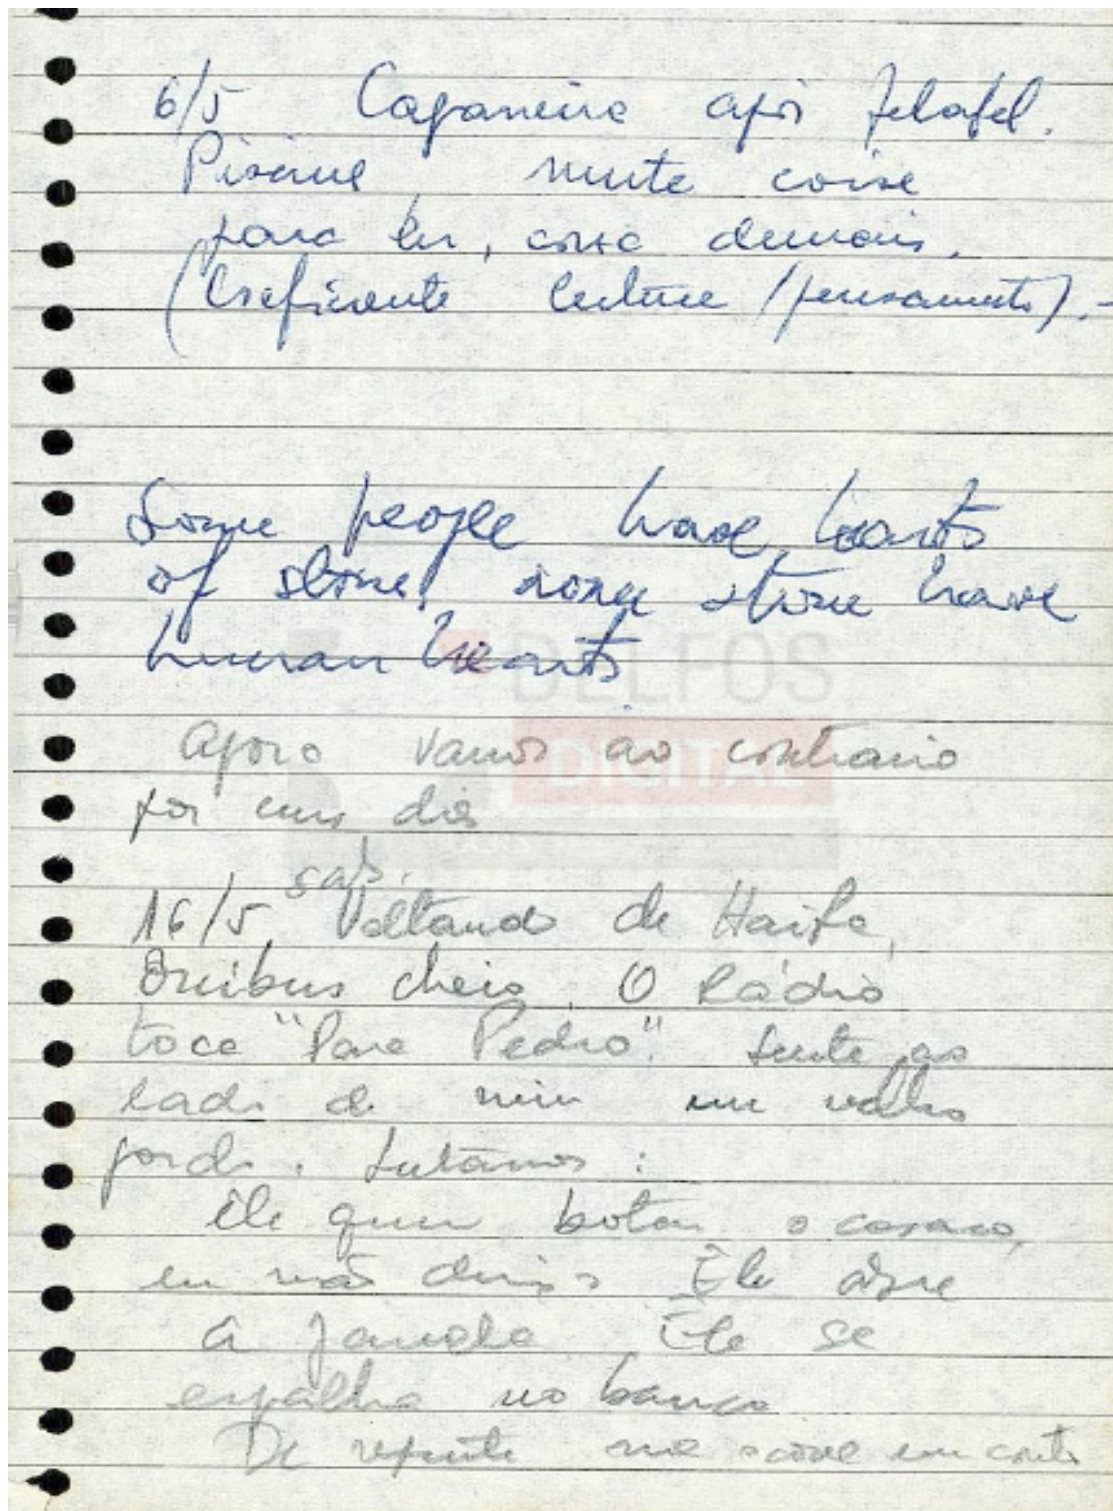 6/5 Caganeira após felafel.
Piscina, muita coisa
para ler, coisa demais.
(Coeficiente leitura / pensamento). -
Some people have hearts
of stone, some stone have
human hearts
DELFOS
DIGITAL
Agora vamos ao contrario
por uns dias
sab.
16/5 Voltando de Haifa,
Ônibus cheio. O Rádio
toca "Para Pedro". Senta ao
lado de mim um velho
gordo. Lutamos:
Ele quer botar o casaco,
eu não deixo Ele abre
a janela Ele se
espalha no banco
De repente me ocorre um conto